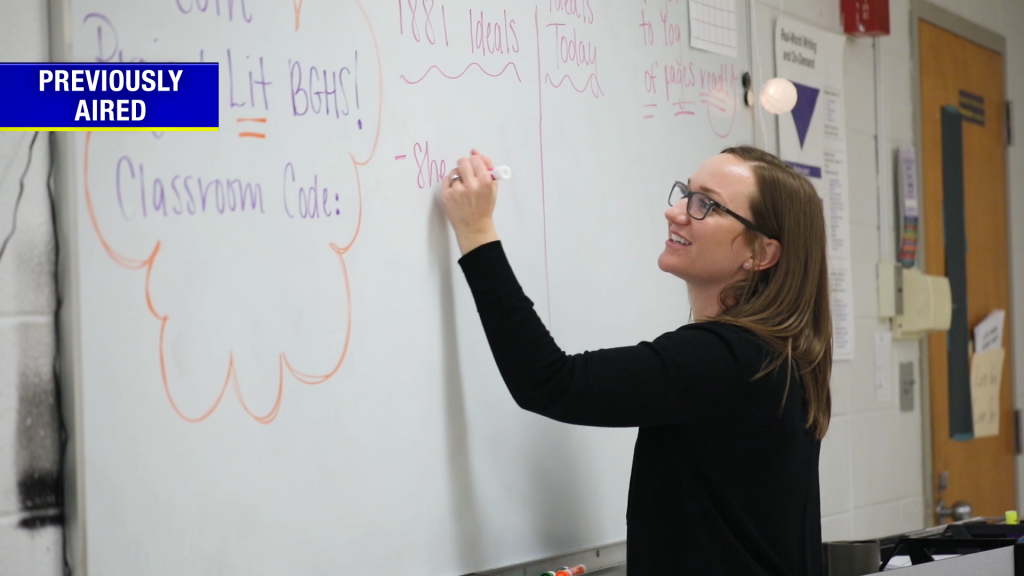 PREVIOUSLY
AIRED
Lit BGHS!
Classroom Code:
1881 Ideals
- She
Ideals
Today
to you
of pages read!
Real-World Writing
and On-Demand